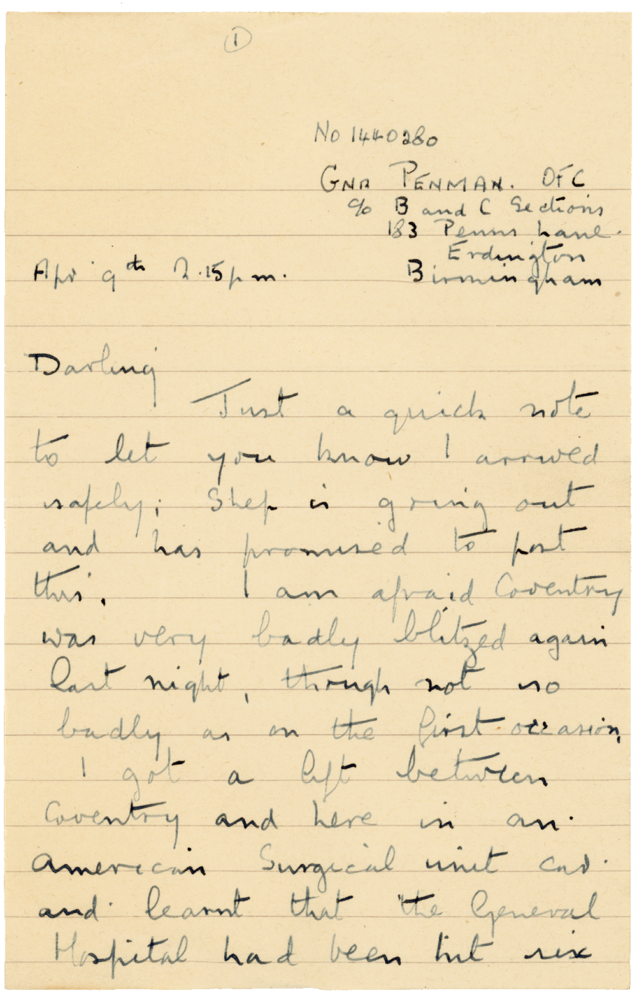 1
No 1440280
GNR PENMAN. OFC
c/o B and C Sections
183 Penns Lane.
Erdington
Apr 9th 2.15pm.
Birmingham
Darling
Just a quick note
to let you know I arrived
safely; Shep is going out
and has promised to post
this. I am afraid Coventry
was very badly blitzed again
last night, though not so
badly as on the first occasion.
I got a lift between
Coventry and here in an
American Surgical unit car.
and learnt that the General
Hospital had been hit six